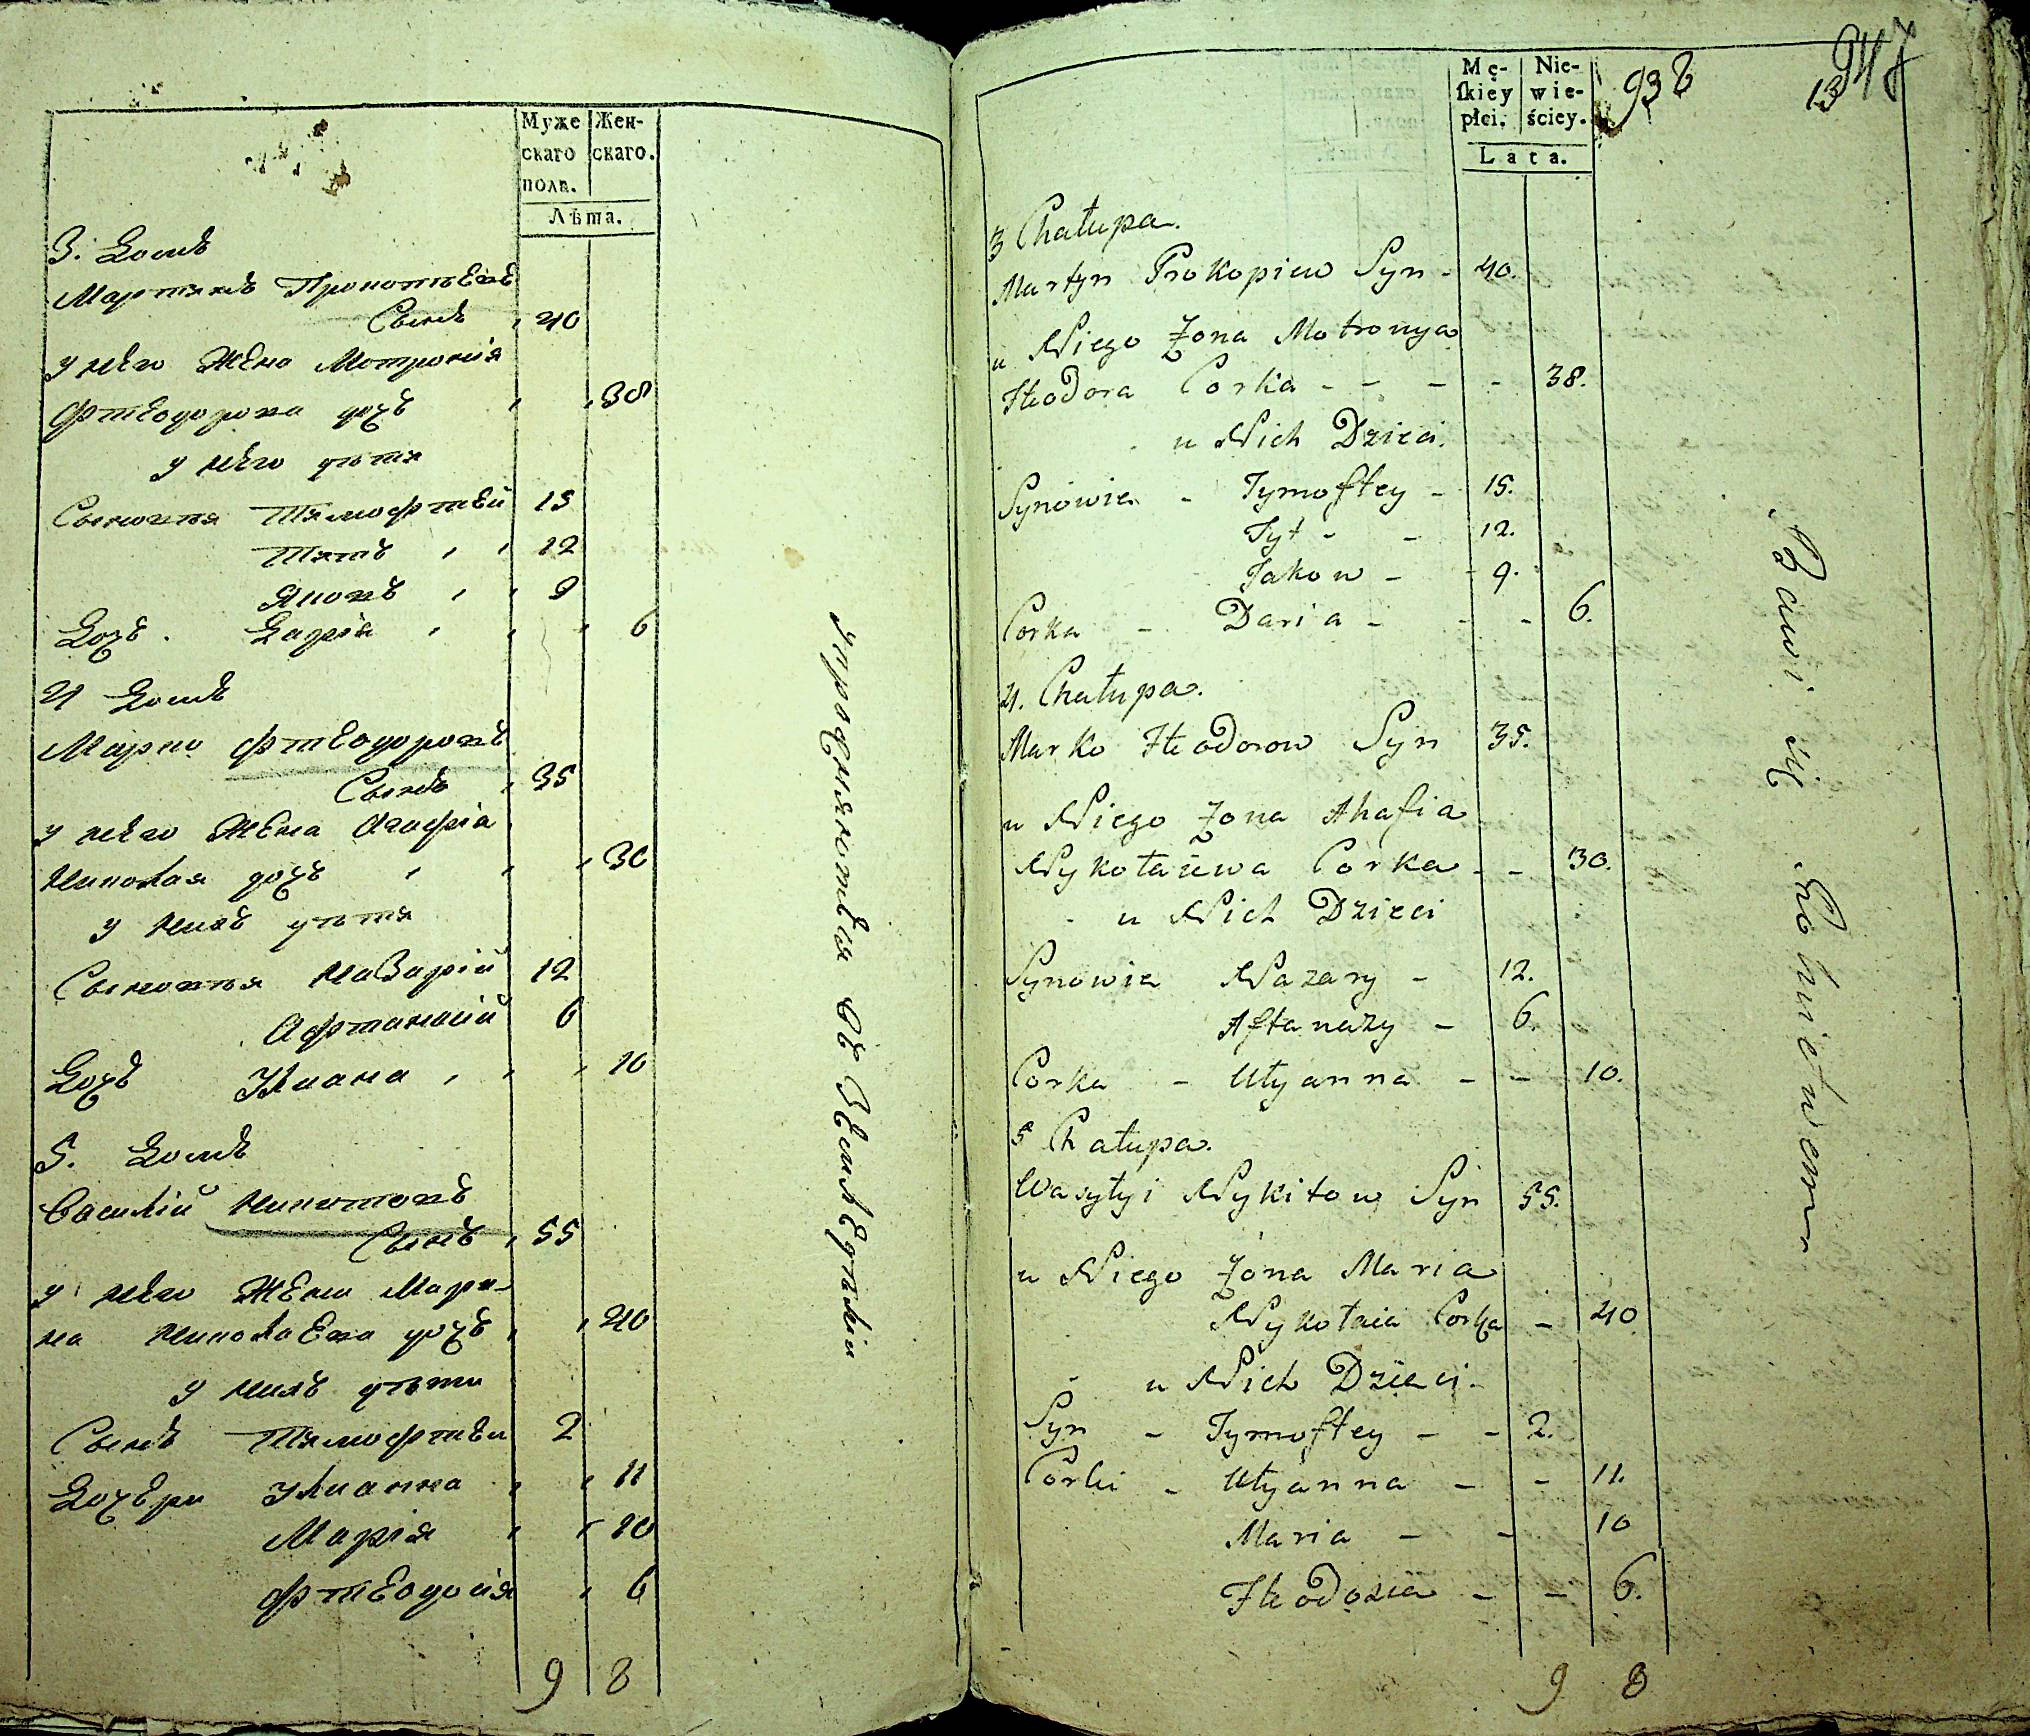 Муже
скаго
полв.
Жен-
скаго.
Лѣта.
3. Домъ
Мартинъ Прокопѣевъ
Сынъ , 40
у него Жена Мотронія
Фтеодорова дочъ , , 38
у него дѣти
Сыновья Тимофтей 15
Титъ , , 12
Яковъ , , 9
Дочъ. Дарія , , , 6
4 Домъ
Марко Фтеодоровъ
Сынъ , 35
у него Жена Агафіа
Николая дочъ , , , 30
у нихъ дѣти
Сыновья Назарій 12
Афтанасій 6
Дочъ Улиана , , , 10
5. Домъ
Василій Никитовъ
Сынъ , 55
у него Жена Мари-
на Николаева дочъ , , 40
у нихъ дѣти
Сынъ Тимофтеи 2
Дочери Улианна , , 11
Марія , , 10
Фтеодосія , 6
9 8
упрожняются въ Земледѣліи
Mę-
ſkiey
płci.
Nie-
wie-
ściey.
Lata.
938
13
947
3 Chałupa.
Martyn Prokopiew Syn - 40.
u Niego Żona Motronya
Fteodora Corka - - - - 38.
u Nich Dzieci.
Synowie - Tymoftey - 15.
Tyt - - 12.
Jakow - - 9.
Corka - Daria - - - 6.
4. Chałupa.
Marko Fteodorow Syn 35.
u Niego Żona Ahafia
Nykołaiewa Corka - - 30.
- u Nich Dzieci
Synowie Nazary - 12.
Aftanazy - 6.
Corka - Ulyanna - - 10.
5 Chałupa.
Wasyłyi Nykitow Syn 55.
u Niego Żona Maria
Nykołaia Corka - 40
- u Nich Dzieci -
Syn - Tymoftey - - 2.
Corki - Ulyanna - - 11.
Maria - - 10
Fteodozia - - 6.
9 8
Bawi się Rolnictwem